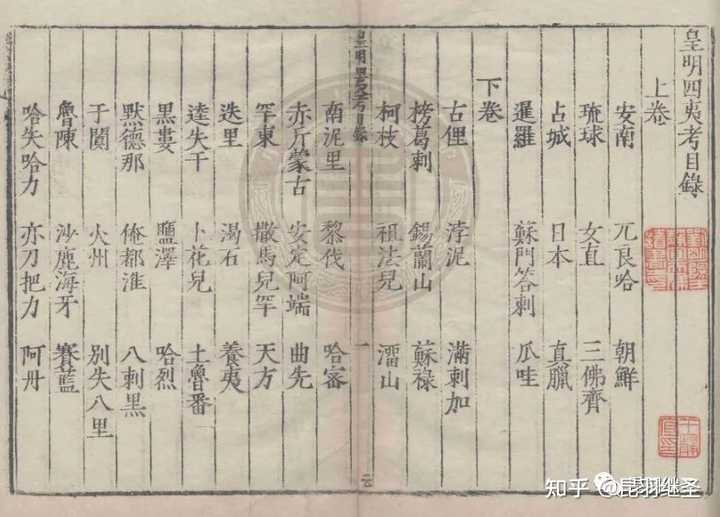 皇明四夷考目錄
上卷
安南 兀良哈 朝鮮
琉球 女直 三佛齊
占城 日本 真臘
暹羅 蘇門答剌 瓜哇
下卷
古俚 浡泥 滿剌加
榜葛剌 錫蘭山 蘇祿
柯枝 祖法兒 溜山
南泥里 黎伐 哈密
赤斤蒙古 安定阿端 曲先
罕東 撒馬兒罕 天方
迭里 渴石 養夷
達失干 卜花兒 土魯番
黑婁 鹽澤 哈烈
默德那 俺都淮 八剌黑
于闐 火州 別失八里
魯陳 沙鹿海牙 賽藍
哈失哈力 亦力把力 阿丹
知乎 @昆羽继圣